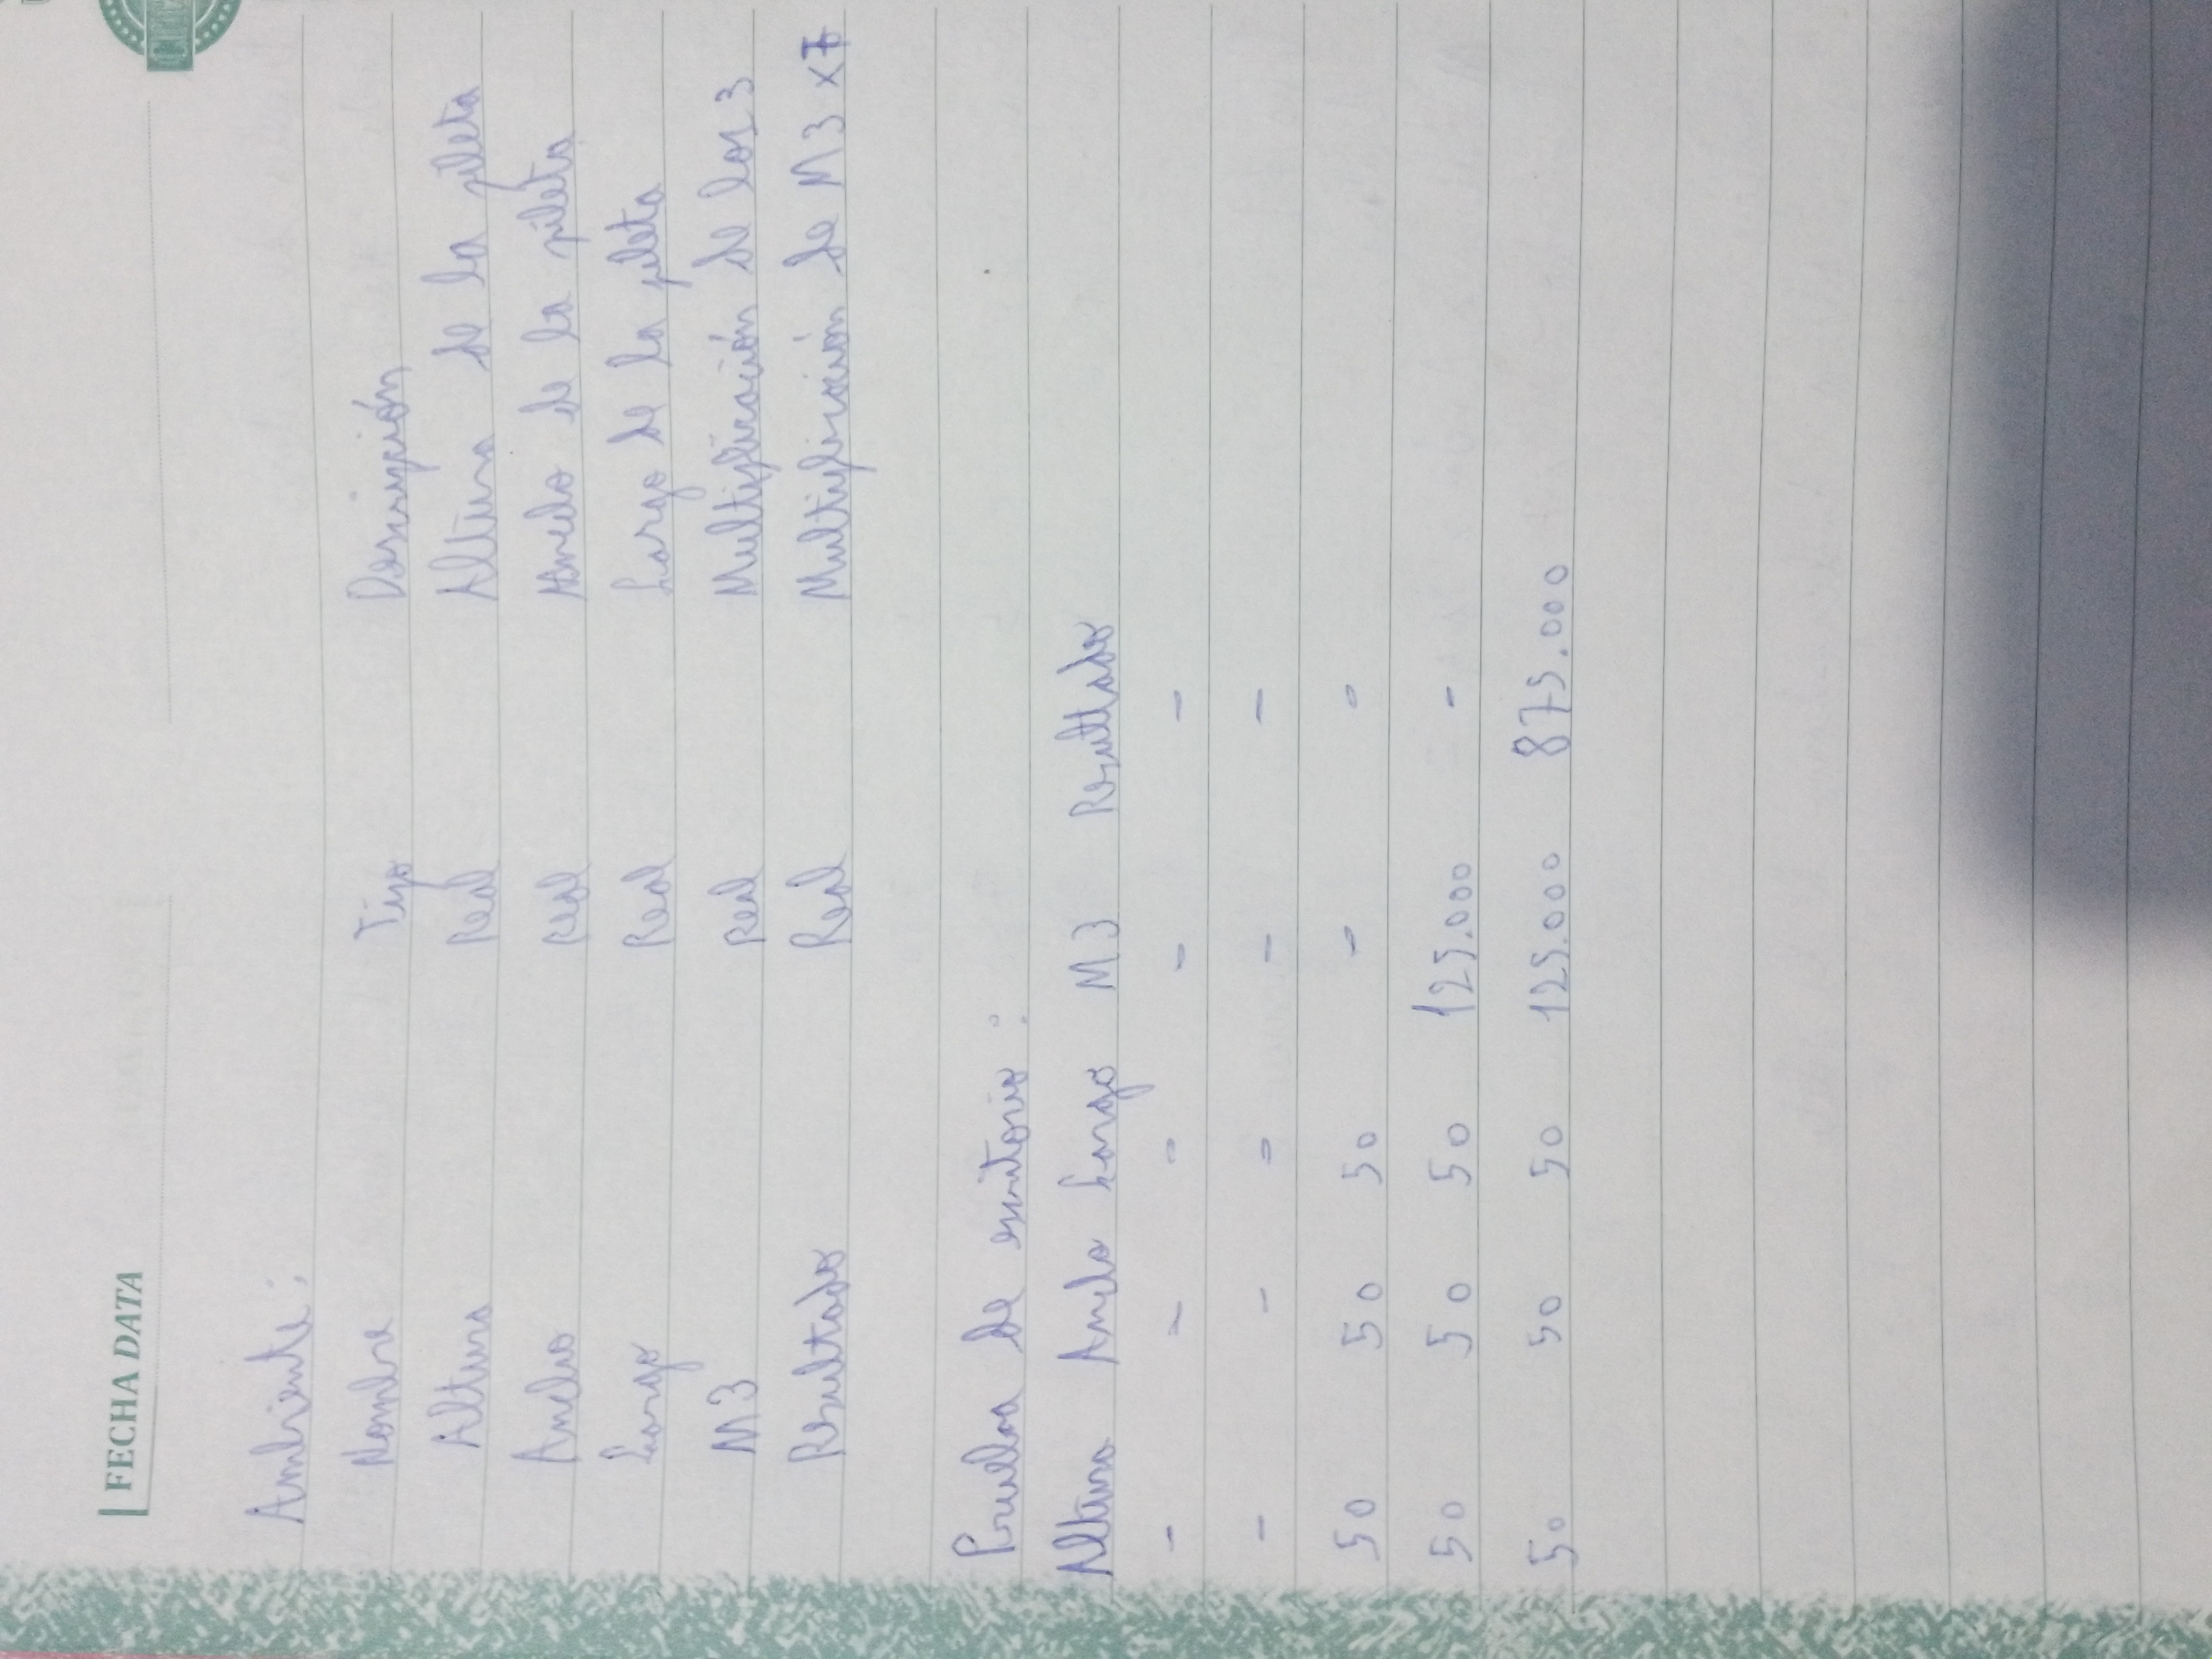 FECHA DATA
Ambiente:
Nombre Tipo Descripción
Altura Real Altura de la pileta
Ancho Real Ancho de la pileta
Largo Real Largo de la pileta
M3 Real Multiplicación de los 3
Resultado Real Multiplicación de M3 x7
Prueba de escritorio:
Altura Ancho Largo M3 Resultado
- - - - -
- - - - -
50 50 50 - -
50 50 50 125.000 -
50 50 50 125.000 875.000